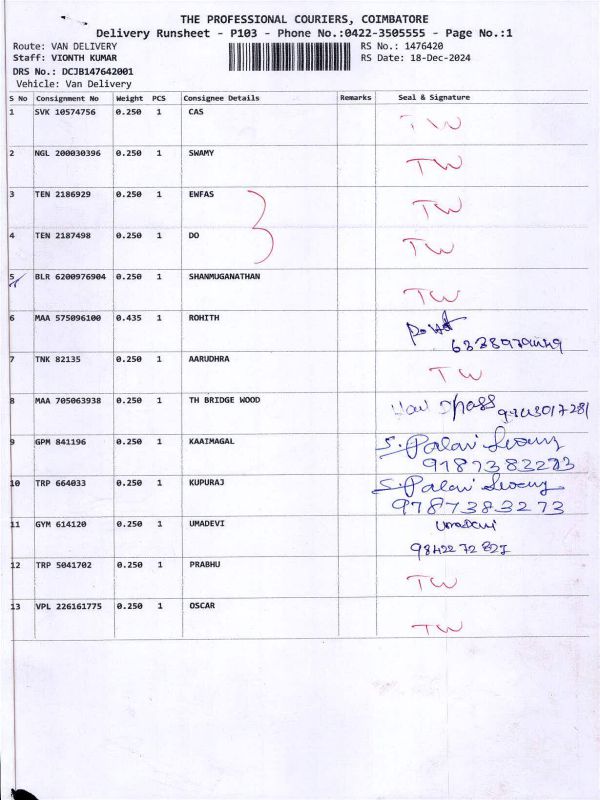 THE PROFESSIONAL COURIERS, COIMBATORE
Delivery Runsheet - P103 - Phone No.:0422-3505555 - Page No.:1
Route: VAN DELIVERY RS No.: 1476420
Staff: VIONTH KUMAR RS Date: 18-Dec-2024
DRS No.: DCJB147642001
Vehicle: Van Delivery
S No Consignment No Weight PCS Consignee Details Remarks Seal & Signature
1 SVK 10574756 0.250 1 CAS TW
2 NGL 200030396 0.250 1 SWAMY TW
3 TEN 2186929 0.250 1 EWFAS TW
4 TEN 2187498 0.250 1 DO TW
5 BLR 6200976904 0.250 1 SHANMUGANATHAN TW
6 MAA 575096100 0.435 1 ROHITH
7 TNK 82135 0.250 1 AARUDHRA TW
8 MAA 705063938 0.250 1 TH BRIDGE WOOD
9 GPM 841196 0.250 1 KAAIMAGAL S. Palani
10 TRP 664033 0.250 1 KUPURAJ S. Palani
9787383273
11 GYM 614120 0.250 1 UMADEVI Umadevi
12 TRP 5041702 0.250 1 PRABHU TW
13 VPL 226161775 0.250 1 OSCAR TW